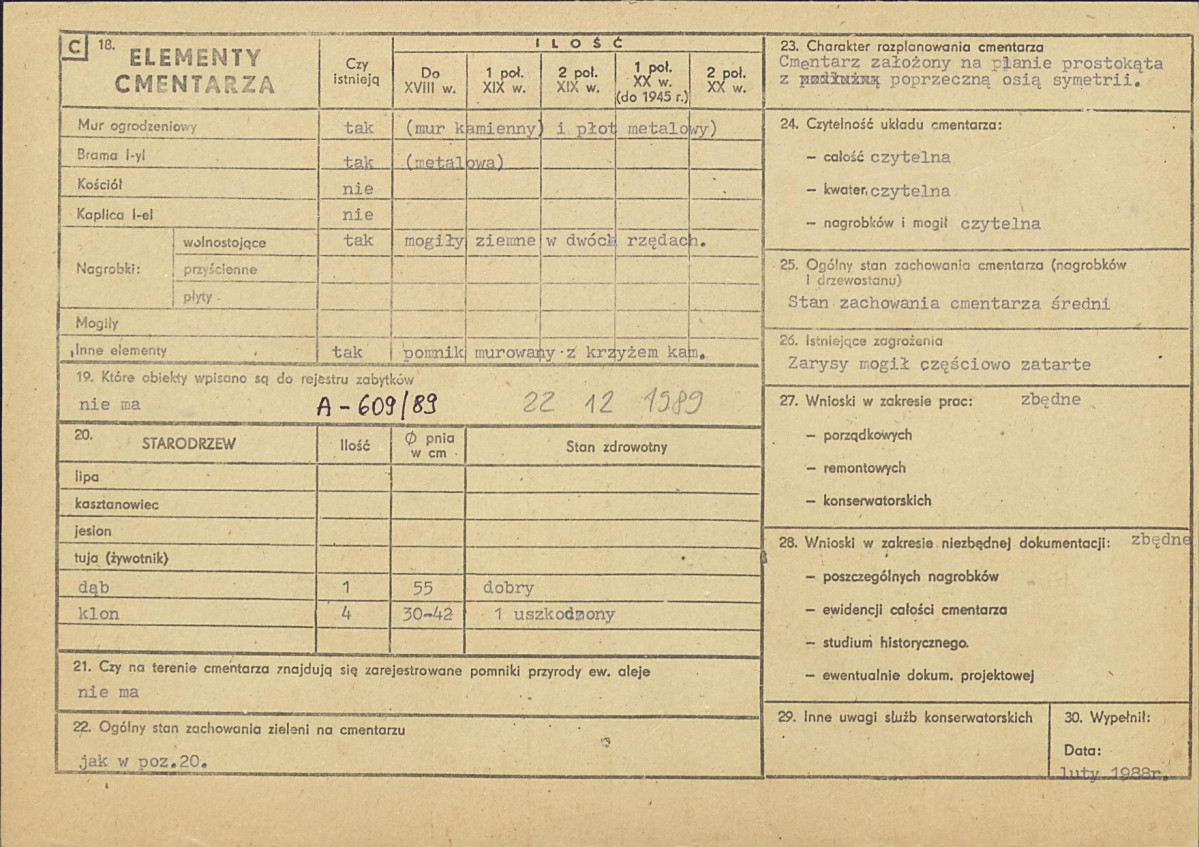 C 18. ELEMENTY CMENTARZA
Czy istnieją
ILOŚĆ
Do XVIII w.
1 poł. XIX w.
2 poł. XIX w.
1 poł. XX w. (do 1945 r.)
2 poł. XX w.
Mur ogrodzeniowy tak (mur kamienny) i płot metalowy)
Brama l-yl tak (metalowa)
Kościół nie
Kaplica l-el nie
Nagrobki:
wolnostojące tak mogiły ziemne w dwóch rzędach.
przyścienne
płyty
Mogiły
Inne elementy tak pomnik murowany z krzyżem kam.
19. Które obiekty wpisano są do rejestru zabytków
nie ma A-609/89 22 12 1989
20. STARODRZEW Ilość Ø pnia w cm Stan zdrowotny
lipa
kasztanowiec
jesion
tuja (żywotnik)
dąb 1 55 dobry
klon 4 30-42 1 uszkodzony
21. Czy na terenie cmentarza znajdują się zarejestrowane pomniki przyrody ew. aleje
nie ma
22. Ogólny stan zachowania zieleni na cmentarzu
jak w poz.20.
23. Charakter rozplanowania cmentarza
Cmentarz założony na planie prostokąta
z poprzeczną osią symetrii.
24. Czytelność układu cmentarza:
— całość czytelna
— kwater, czytelna
— nagrobków i mogił czytelna
25. Ogólny stan zachowania cmentarza (nagrobków
i drzewostanu)
Stan zachowania cmentarza średni
26. Istniejące zagrożenia
Zarysy mogił częściowo zatarte
27. Wnioski w zakresie prac: zbędne
— porządkowych
— remontowych
— konserwatorskich
28. Wnioski w zakresie niezbędnej dokumentacji: zbędne
— poszczególnych nagrobków
— ewidencji całości cmentarza
— studium historycznego.
— ewentualnie dokum. projektowej
29. Inne uwagi służb konserwatorskich
30. Wypełnił:
Data:
luty 1988r.